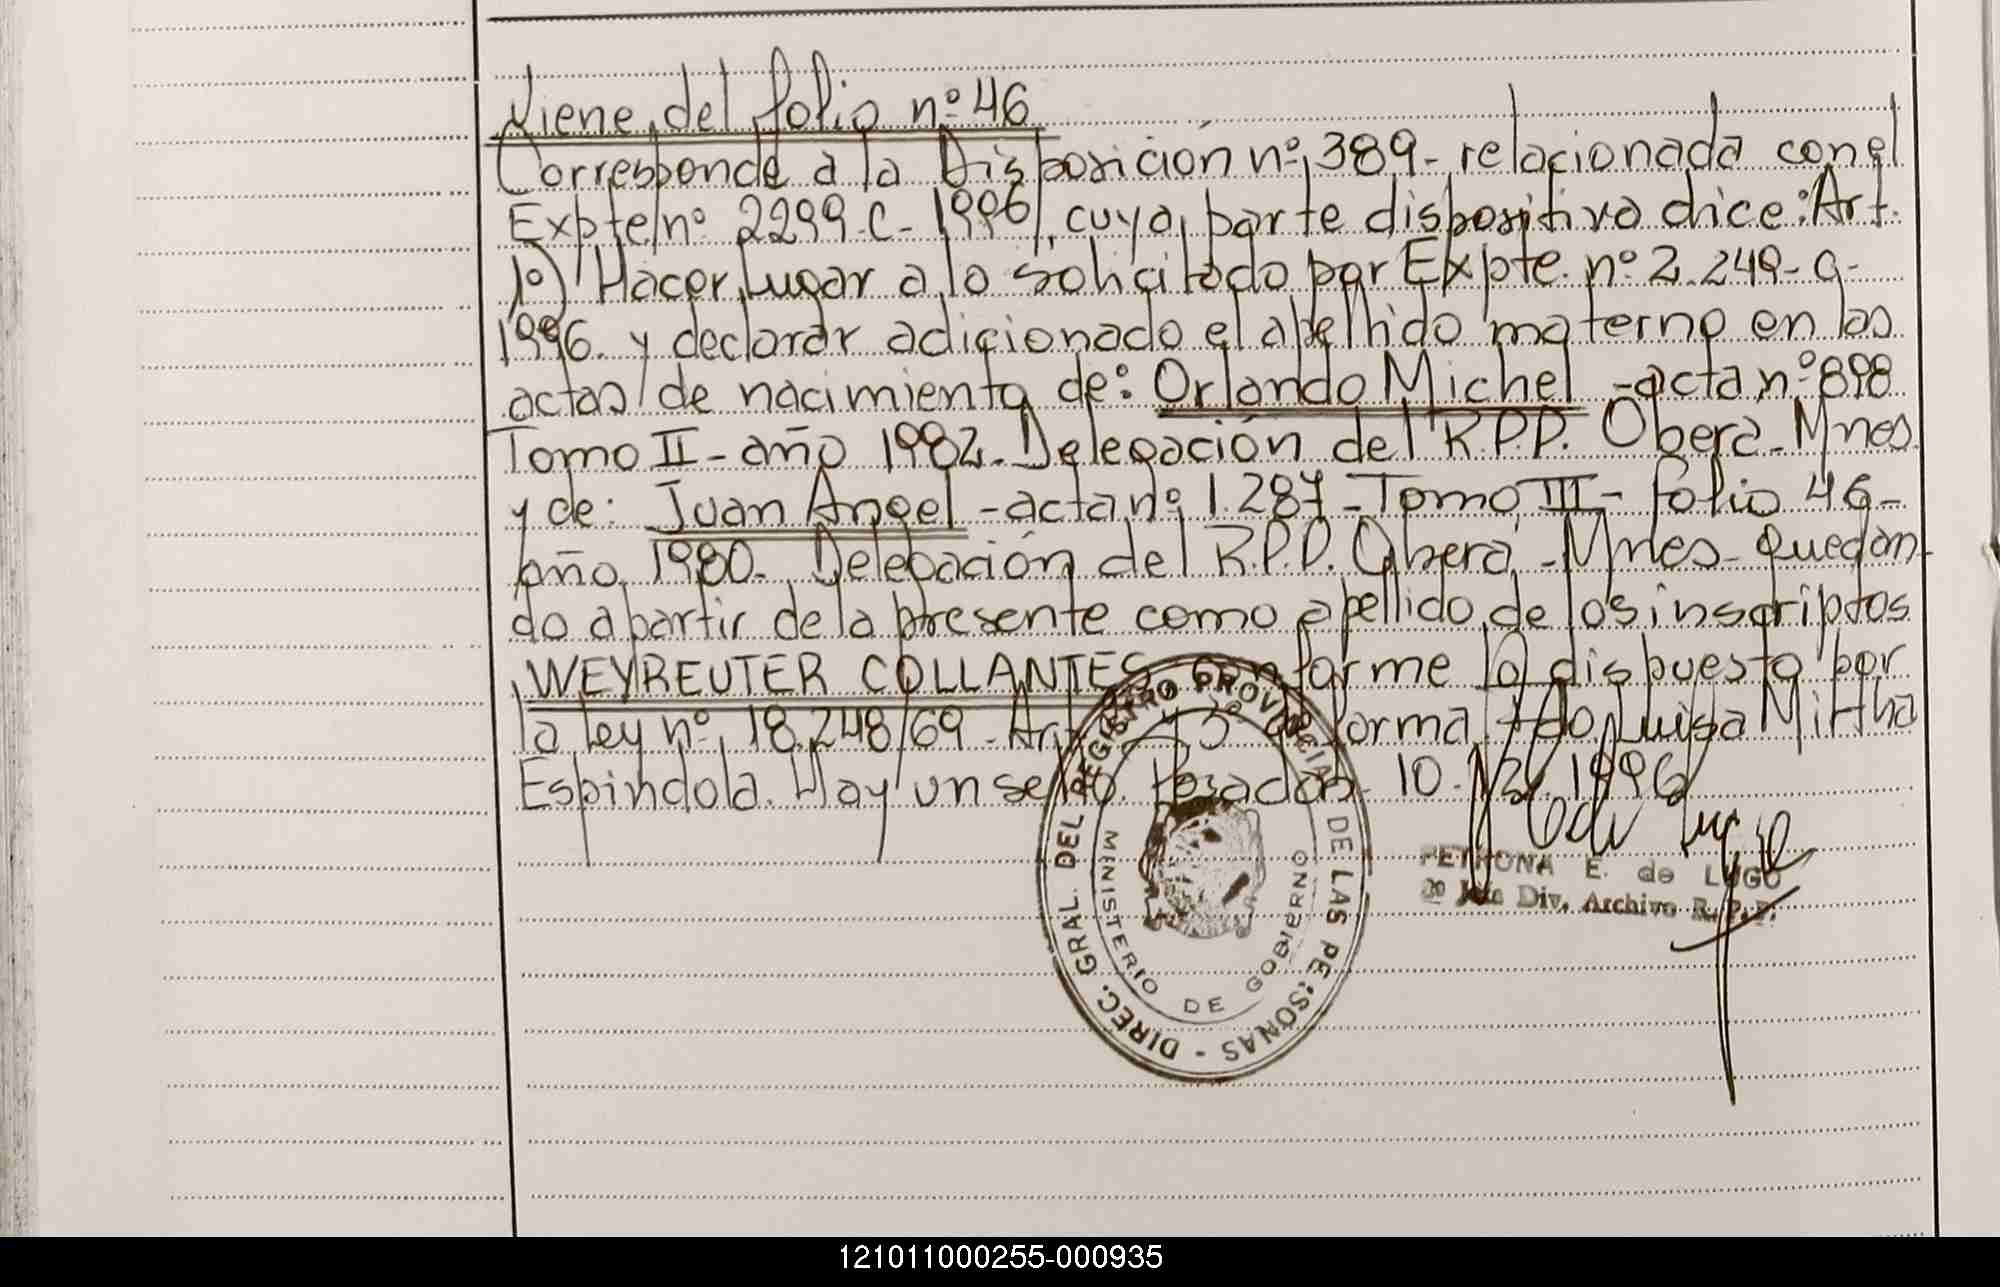 Viene del folio nº 46
Corresponde a la Disposición nº 389 - relacionada con el
Expte nº 2299-C- 1996, cuya parte dispositiva dice: Art.
1º) Hacer lugar a lo solicitado por Expte. nº 2.249-C-
1996. y declarar adicionado el apellido materno en las
actas de nacimiento de: Orlando Michel - acta nº 898
Tomo II - año 1982. Delegación del R.P.P. Oberá - Mnes.
y de: Juan Angel - acta nº 1.287 - Tomo III - folio 46 -
año 1980. Delegación del R.P.P. Oberá - Mnes - quedan-
do a partir de la presente como apellido de los inscriptos
WEYREUTER COLLANTES conforme lo dispuesto por
la ley nº 18.248/69 - Art. y 3º forma. Fdo. Luisa Mirtha
Espíndola. Hay un sello. Posadas 10. 1996
DIREC. GRAL. DEL REGISTRO PROVINCIAL DE LAS PERSONAS -
MINISTERIO DE GOBIERNO
PETRONA E. de LUGO
2º Jefe Div. Archivo R.P.P.
121011000255-000935